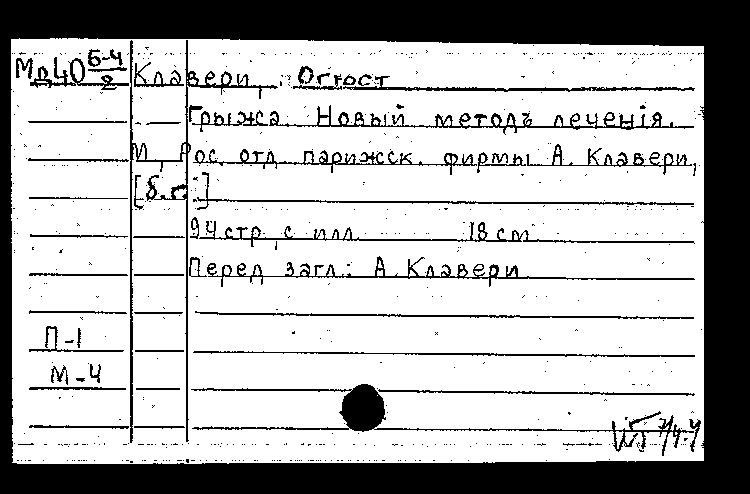 Мд40 Б-4/2 Клавери, Огюст
Грыжа. Новый методъ леченія.
М., Рос. отд. парижск. фирмы А. Клавери,
[б.г.]
94 стр. с илл. 18 см.
Перед загл.: А. Клавери
П-1
М-4